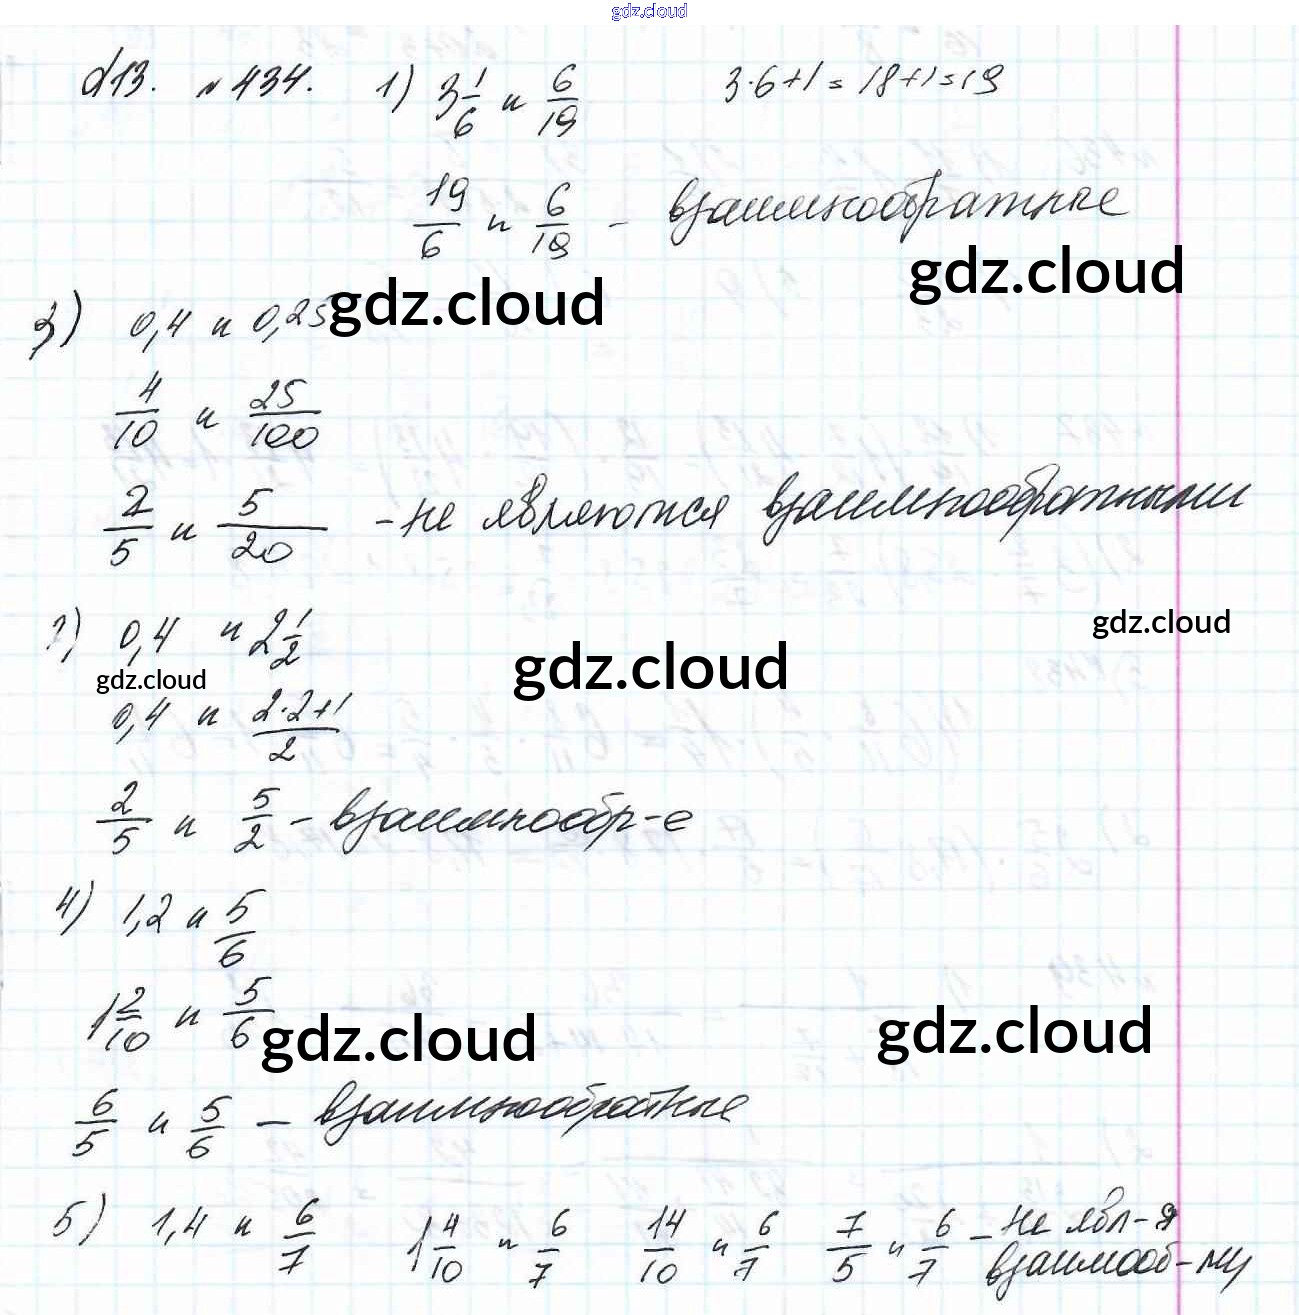 gdz.cloud
d13. №434. 1) 3 1/6 и 6/19 3·6+1=18+1=19
19/6 и 6/19 – взаимнообратные
gdz.cloud
3) 0,4 и 0,25 gdz.cloud
4/10 и 25/100
2/5 и 5/20 – не являются взаимнообратными
2) 0,4 и 2 1/2 gdz.cloud gdz.cloud
gdz.cloud
0,4 и 2·2+1/2
2/5 и 5/2 – взаимнообр-е
4) 1,2 и 5/6
1 2/10 и 5/6 gdz.cloud gdz.cloud
6/5 и 5/6 – взаимнообратные
5) 1,4 и 6/7 1 4/10 и 6/7 14/10 и 6/7 7/5 и 6/7 – не явл-я
взаимооб-ми